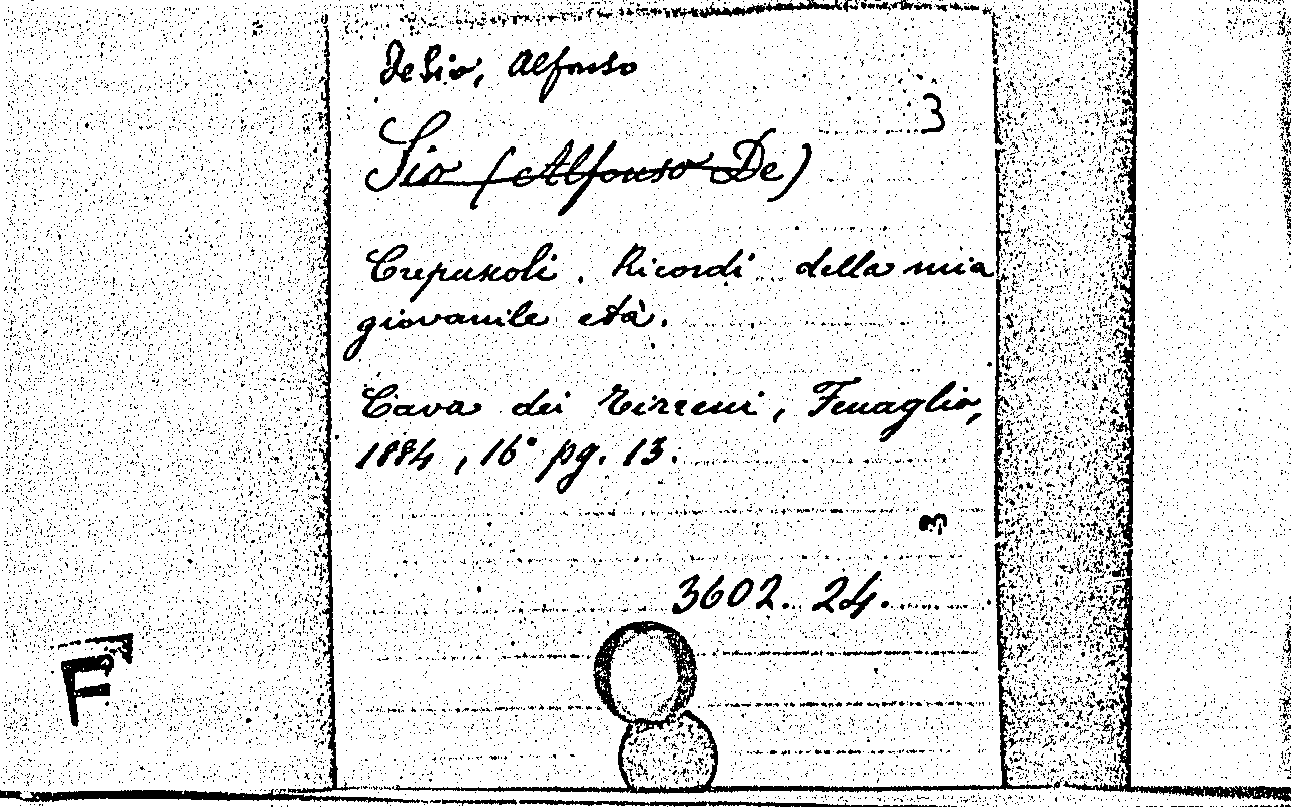 De Sio, Alfonso
3
Sio (Alfonso De)
Crepuscoli. Ricordi della mia
giovanile età.
Cava dei Tirreni, Fenaglio,
1884, 16° pg. 13.
3
3602. 24.
F